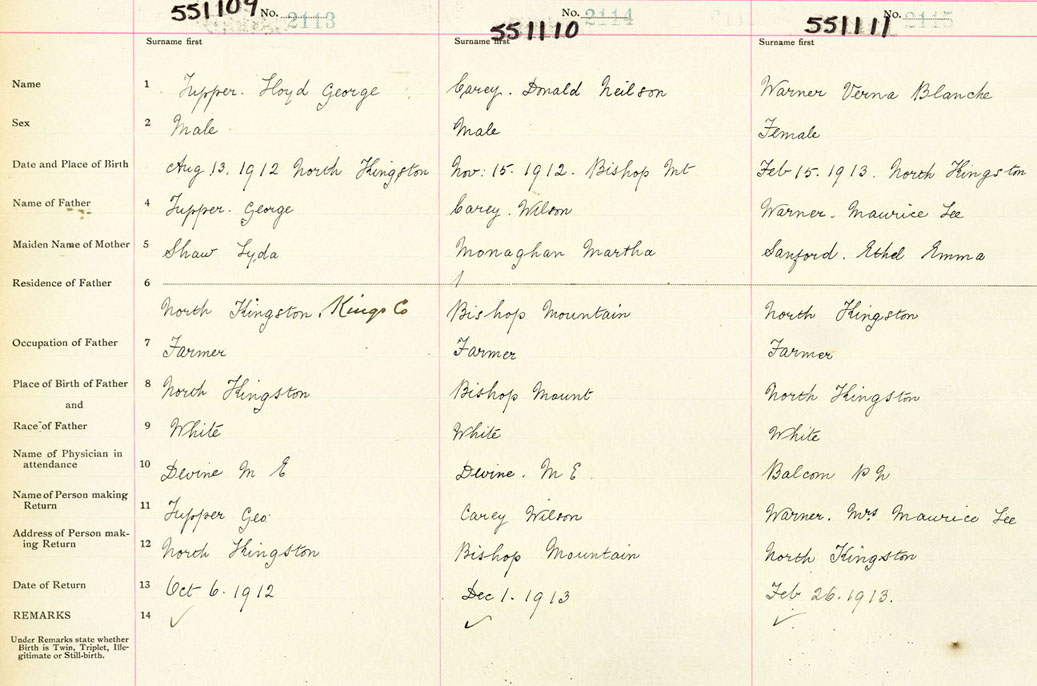 551109 No. 2113 551110 No. 2114 551111 No. 2115
Surname first Surname first Surname first
Name 1 Tupper. Lloyd George Carey. Donald Neilson Warner Verna Blanche
Sex 2 Male Male Female
Date and Place of Birth Aug 13. 1912 North Kingston Nov: 15. 1912. Bishop Mt Feb 15. 1913. North Kingston
Name of Father 4 Tupper. George Carey. Wilson Warner. Maurice Lee
Maiden Name of Mother 5 Shaw Lyda Monaghan Martha Sanford. Ethel Emma
Residence of Father 6
North Kingston, Kings Co Bishop Mountain North Kingston
Occupation of Father 7 Farmer Farmer Farmer
Place of Birth of Father 8 North Kingston Bishop Mount North Kingston
and
Race of Father 9 White White White
Name of Physician in
attendance 10 Devine M E Devine. M E Balcom P N
Name of Person making
Return 11 Tupper Geo. Carey Wilson Warner. Mrs Maurice Lee
Address of Person mak-
ing Return 12 North Kingston Bishop Mountain North Kingston
Date of Return 13 Oct 6. 1912 Dec 1. 1913 Feb 26. 1913.
REMARKS 14 ✓ ✓ ✓
Under Remarks state whether
Birth is Twin, Triplet, Ille-
gitimate or Still-birth.